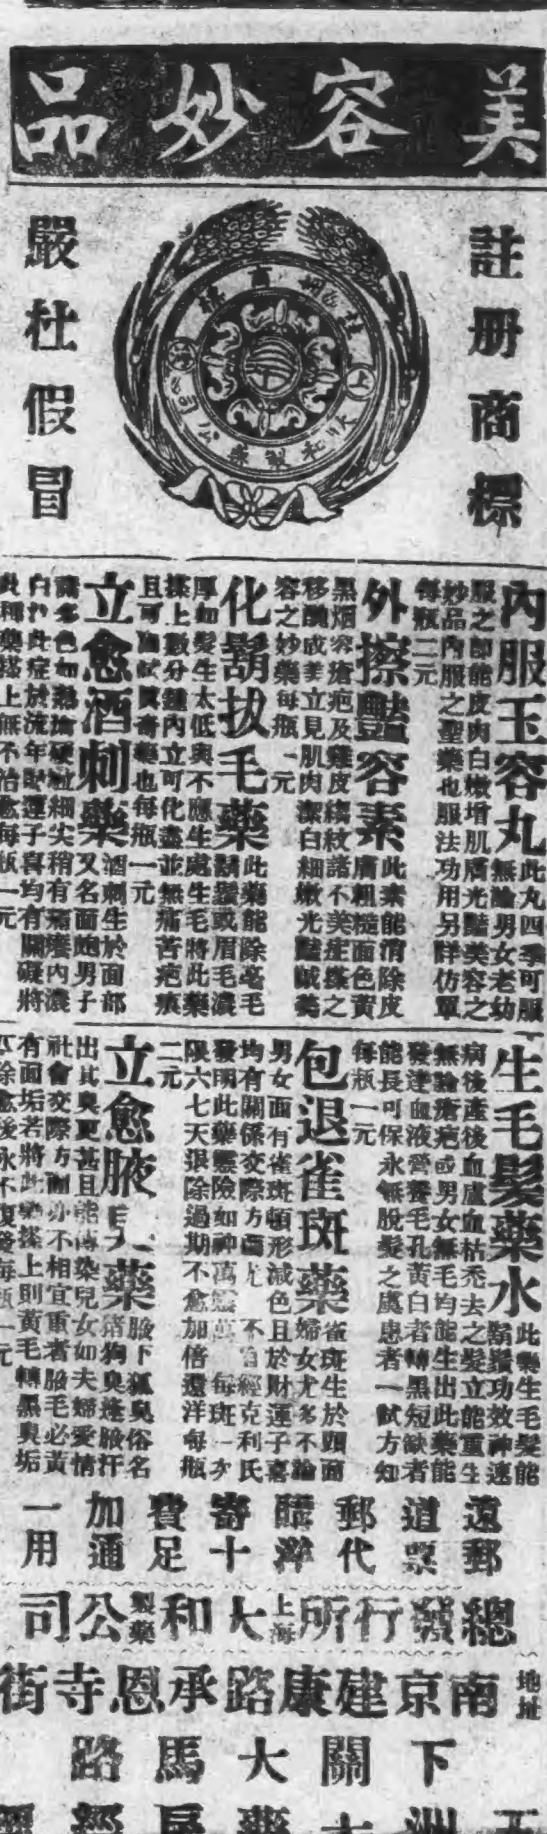 美容妙品
註册商標
嚴杜假冒
內服玉容丸
此丸四季可服
無論男女老幼
服之即能皮肉白嫩增肌膚光豔美容之
妙品內服之聖藥也服法功用另詳仿單
每瓶二元
外擦豔容素
此素能消除皮
膚粗糙面色黃
黑烟容瘡疤及雞皮縐紋諸不美症搽之
移醜成美立見肌肉潔白細嫩光豔
容之妙藥每瓶一元
化鬍拔毛藥
此藥能除毫毛
鬍鬚或眉毛濃
厚如髮生太低與不應生處生毛將此藥
搽上數分鐘內立可化盡並無痛苦疤痕
且可 試 奇藥也每瓶一元
立愈酒刺藥
酒刺生於面部
又名面皰男子
諸多色如 硬 細尖稍有痛癢內濃
白 此症於流年財運子喜均有關礙將
此種藥搽上無不治愈每瓶一元
生毛髮藥水
此藥生毛髮能
鬍鬚功效神速
病後產後血虛血枯禿去之髮立能重生
無論瘡疤或男女無毛均能生出此藥能
發達血液營養毛孔黃白者轉黑短缺者
能長可保永無脫髮之虞患者一試方知
每瓶一元
包退雀斑藥
雀斑生於頭面
婦女尤多不論
男女面有雀斑頓形減色且於財運子喜
均有關係交際方面尤 不 自經克利氏
發明此藥靈險如神萬靈萬 每斑一次
限六七天退除過期不愈加倍還洋每瓶
二元
立愈腋臭藥
腋下狐臭俗名
猪狗臭逢腋汗
出其臭更甚且能傳染兒女如夫婦愛情
社會交際方面亦不相宜重者腋毛必黃
有面垢若將此藥搽上則黃毛轉黑臭垢
除愈後永不復發每瓶一元
遠道郵 寄費加一
郵票代洋十足通用
總發行所上海大和製藥公司
地址
南京建康路承恩寺街
下關大馬路
五洲大藥房